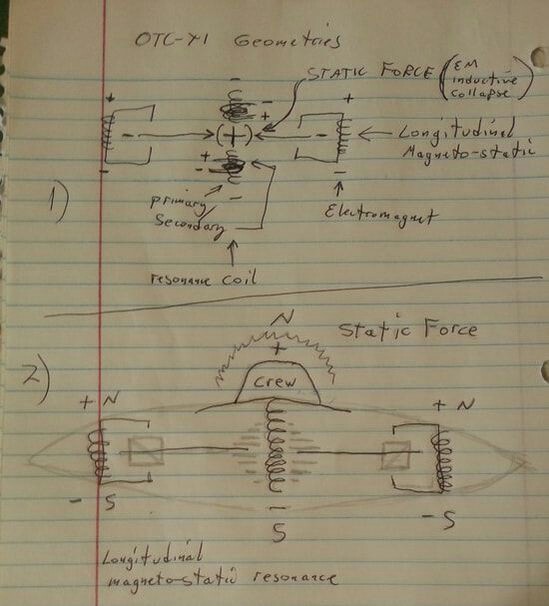 OTC-X1 Geometries
STATIC FORCE (EM
inductive
collapse)
Longitudinal
Magneto-static
1)
primary
Secondary
Electromagnet
resonance coil
N
Static Force
2)
+
crew
+ N
+ N
- S
-
S
- S
Longitudinal
magneto-static resonance